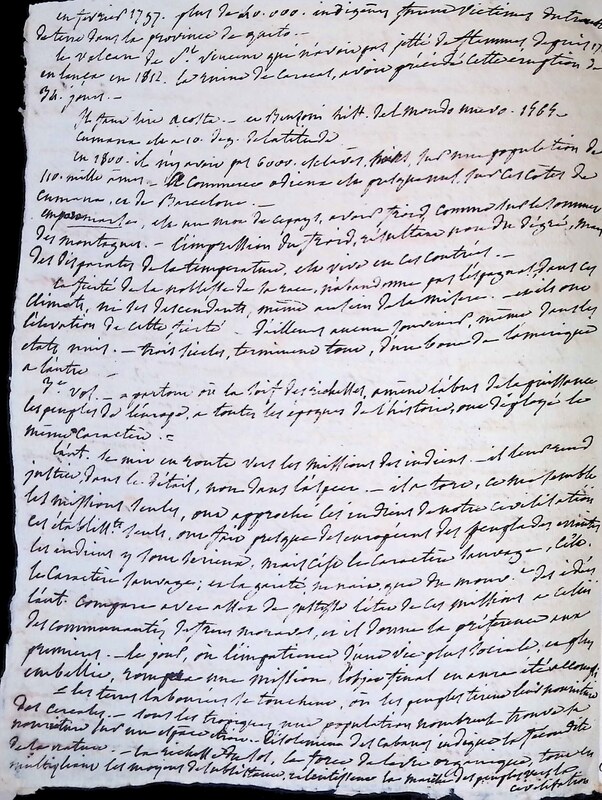 en février 1797. plus de 40.000. indigènes furent victimes du tremble
de terre dans la province de quito. —
le volcan de St. vincent qui n'avoit pas jetté de flammes depuis 17
en lança en 1812. la ruine de caracas, avoit précédé cette éruption de
34. jours. —
il faut lire acosta. — et Benzoni hist. del mondo nuovo. 1565 —
Cumana est a 10. deg. de latitude
en 1800. il n'y avoit pas 6000. esclaves, sur une population de
110. mille ames. le commerce est presque nul, sur les côtes de
Cumana, et de Barcelone. —
est un mot de ce pays, avoir froid, comme sur le sommet
des montagnes. — l'impression du froid, résultant non du dégré, mais
des disparates de la température, est vive en ces contrés. —
la fierté de la noblesse de sa race, n'abandonne pas l'espagnol, dans ces
climats, ni ses descendants, même au sein de la misère. — ils ont
l'élévation de cette fierté — d'ailleurs aucun souvenir, même dans les
etats unis. — trois siècles, terminent tout, d'un bout de l'amérique
a l'autre
3e. vol. — partout où la soif des richesses, amène l'abus de la puissance
les peuples de l'europe, a toutes les époques de l'histoire, ont déployé le
même caractère. —
l'aut. se mit en route vers les missions des indiens. — il leur rend
justice, dans le détail, non dans l'espèce. — il a tort, ce me semble
les missions seules, ont approché les indiens de notre civilisation
ces établissts. seuls, ont fait presque des européens des peuplades errantes
les indiens y sont sérieux, mais c'est le caractère sauvage, c'est
le caractère sauvage; et la gaieté ne nait, que du mouvt. des idées
l'aut. compare avec assez de justesse l'état de ces missions a celui
des communautés de frères moraves, et il donne la préférence aux
premiers. — le jour, où l'impatience d'une vie plus sociale, et plus
embellie, rompra une mission, l'objet final en aura été accompli
— les terres labourées se touchent, où les peuples tirent leur nourriture
des céréales. — sous les tropiques une population nombreuse trouve sa
nourriture sur un espace étroit. l'isolement des cabanes indique la fécondité
de la nature. — la richesse du sol, la force de la vie organique, tout en
multipliant les moyens de subsistance, ralentissent la marche des peuples vers la
civilisation